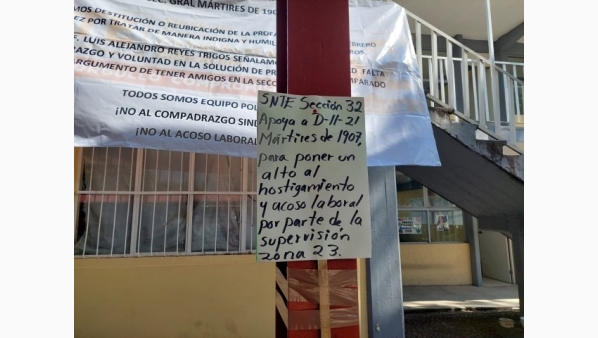 SEC. GRAL MÁRTIRES DE 190
MOS DESTITUCIÓN O REUBICACIÓN DE LA PROFA
EZ POR TRATAR DE MANERA INDIGNA Y HUMIL
BRERO
F. LUIS ALEJANDRO REYES TRIGOS SEÑALAMO
FALTA
RAZGO Y VOLUNTAD EN LA SOLUCIÓN DE PR
ARGUMENTO DE TENER AMIGOS EN LA SECC
MPARADO
TODOS SOMOS EQUIPO POL
¡NO AL COMPADRAZGO SIND
¡NO AL ACOSO LABORAL
SNTE Sección 32
Apoya a D-II-21
Mártires de 1907,
para poner un
alto al
hostigamiento
y acoso laboral
por parte de la
supervisión
zona 23.